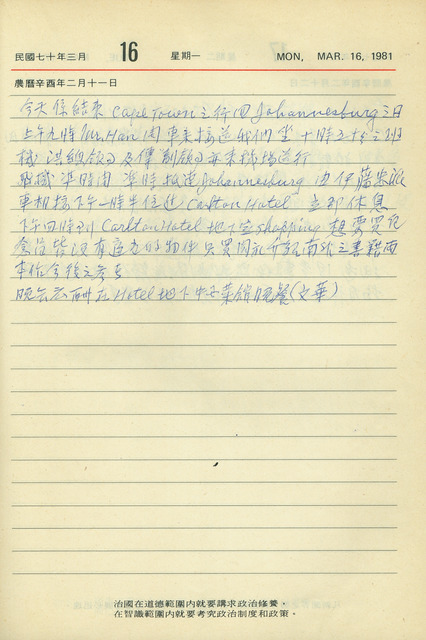 民國七十年三月 16 星期一 MON, MAR. 16, 1981
農曆辛酉年二月十一日
今天係結束 Cape Town 之行回 Johannesburg 之日
上午九時 Mr. Han 開車來接送我們坐十時五十分之班
機 洪總領事及傅副領事亦來機場送行
班機準時開 準時抵達 Johannesburg 由伊藤君派
車相接下午一時半住進 Carlton Hotel 立即休息
下午四時到 Carlton Hotel 地下室 shopping 想要買紀
念品皆沒有適當的物件只買介紹南非之書籍兩
本作今後之參考
晚上在 Hotel 地下中菜館晚餐(文華)
治國在道德範圍內就要講求政治修養，
在智識範圍內就要考究政治制度和政策。